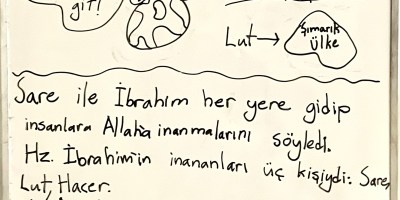 git!
Lut → Şımarık
ülke
Sare ile İbrahim her yere gidip
insanlara Allah'a inanmalarını söyledi.
Hz. İbrahim'in inananları üç kişiydi: Sare,
Lut, Hacer.